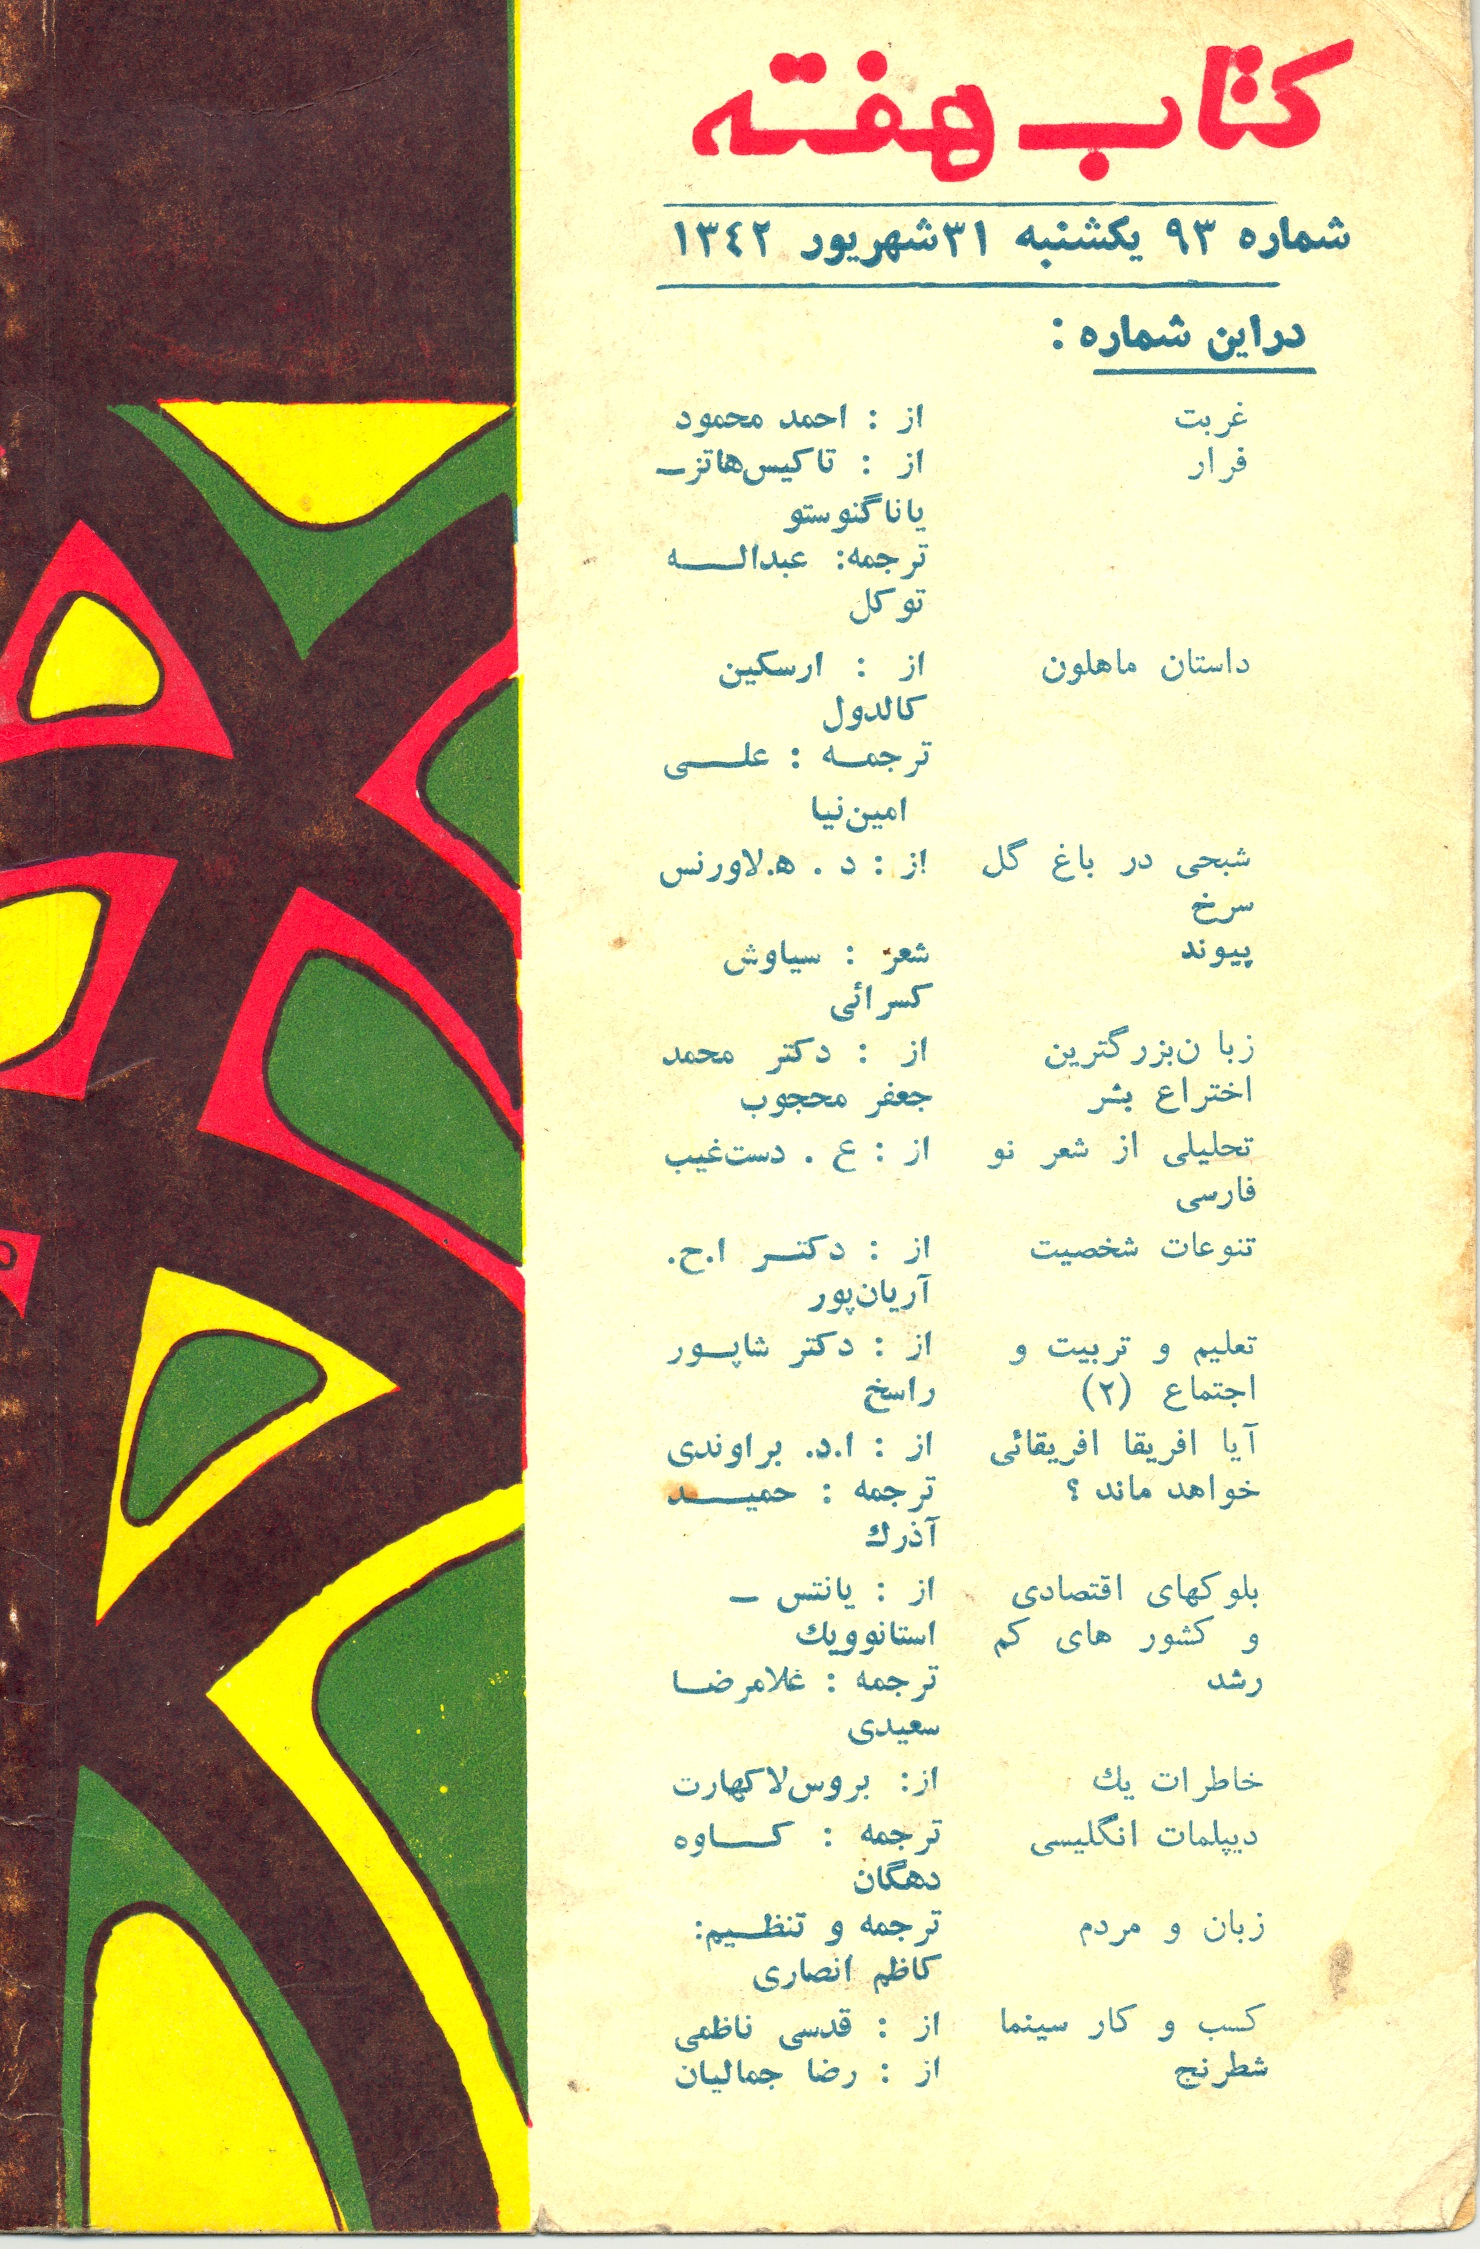 کتاب هفته
شماره ۹۳ یکشنبه ۳۱ شهریور ۱۳٤۲
در این شماره :
غربت از : احمد محمود
فرار از : تاکیس‌هاتز ـ
یاناگنوستو
ترجمه: عبدالـــه
توکل
داستان ماهلون از : ارسکین
کالدول
ترجمـه : علـــی
امین‌نیا
شبحی در باغ گل از : د . ه.لاورنس
سرخ
پیوند شعر : سیاوش
کسرائی
زبان بزرگترین از : دکتر محمد
اختراع بشر جعفر محجوب
تحلیلی از شعر نو از : ع . دست‌غیب
فارسی
تنوعات شخصیت از : دکتـر ا.ح.
آریان‌پور
تعلیم و تربیت و از : دکتر شاپـور
اجتماع (۲) راسخ
آیا افریقا افریقائی از : ا.د. براوندی
خواهد ماند ؟ ترجمه : حمیـــد
آذرك
بلوکهای اقتصادی از : یانتس ـ
و کشور های کم استانوویك
رشد ترجمه : غلامرضـا
سعیدی
خاطرات یك از: بروس‌لاکهارت
دیپلمات انگلیسی ترجمه : کـــاوه
دهگان
زبان و مردم ترجمه و تنظـیم:
کاظم انصاری
کسب و کار سینما از : قدسی ناظمی
شطرنج از : رضا جمالیان